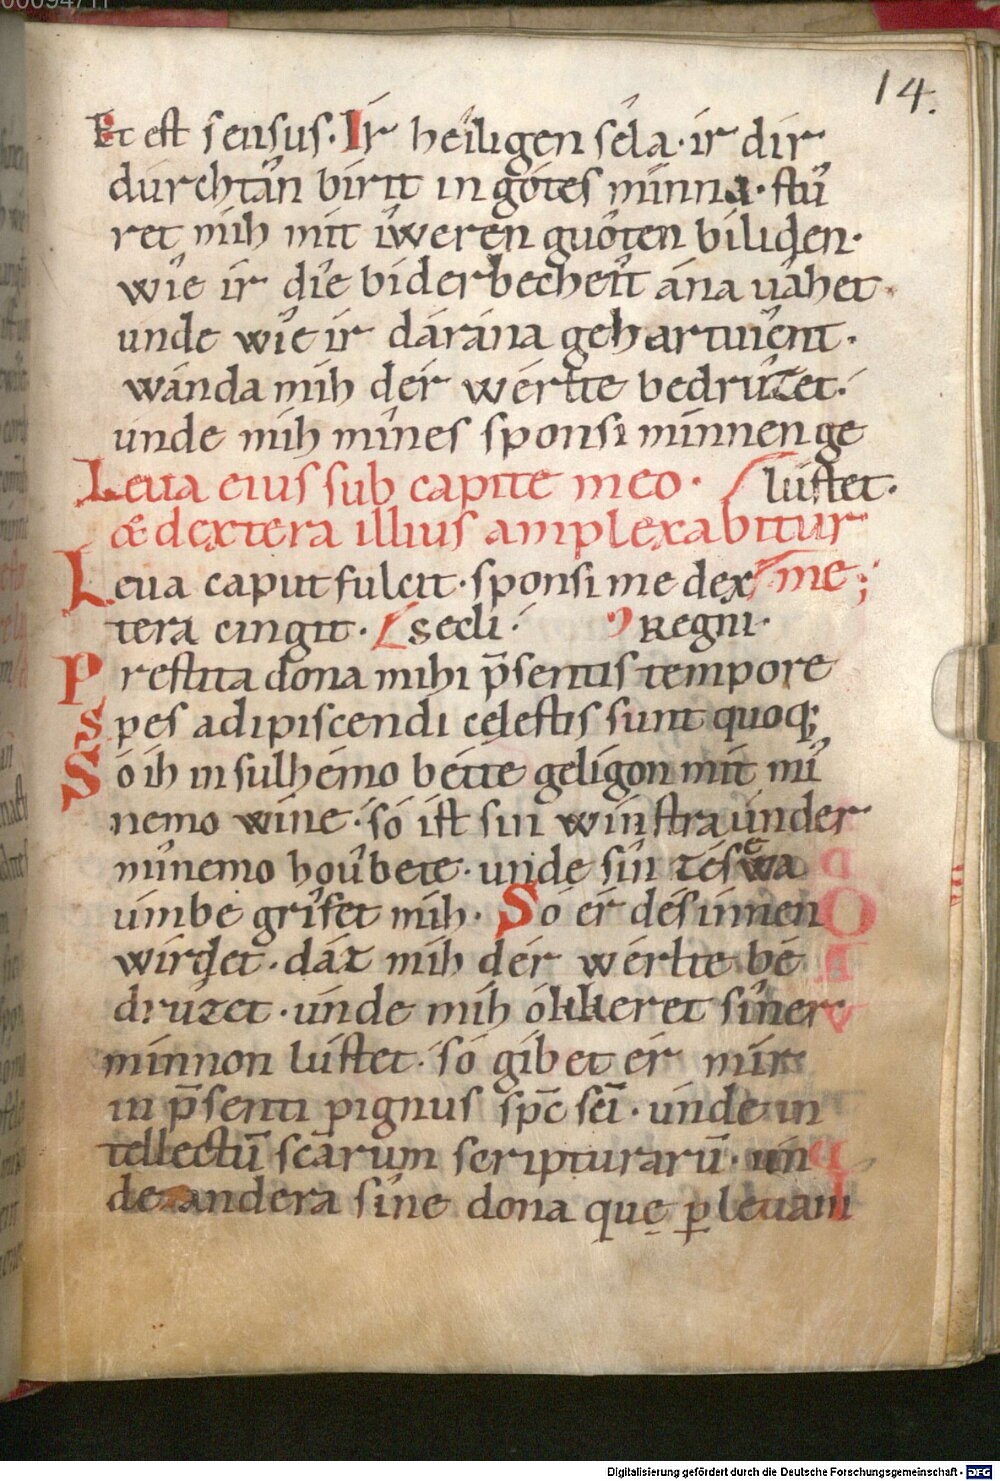 14.
Et est sensus. Ir heiligen séla. ir dir
durchtân birit in gótes minna. stû
ret mih mit iuweren guôten biliden.
wîe ir dîe biderbecheît ána uâhet
unde wîe ir dárána gehartuîent.
wánda mih dér wérlte bedrûzet.
unde mih mînes sponsi minnen ge
lústet.
Leua eius sub capite meo.
& dextera illius amplexabitur
me;
Leua caput fulcit. sponsi me dex
tera cingit. secli. Regni.
Prestita dona mihi p̄sentis tempore
Spes adipiscendi cęlestis sunt quoq;
So ih in sulhémo bétte geligon mit mî
nemo wine. só ist sin winstra únder
mînemo hoûbete. unde sîn zéswea
umbe grîfet mih. Só ér dés innen
wirdet. dáz mih dér wérlte be
drúzet. únde mih ókkeret sîner
minnon lústet. só gibet er mir
in p̄senti pignus sp̄c sc̄i. únde in
tellectū sc̄arum scripturarū. un
de andera sîne dona quę p leuam
Digitalisierung gefördert durch die Deutsche Forschungsgemeinschaft - DFG